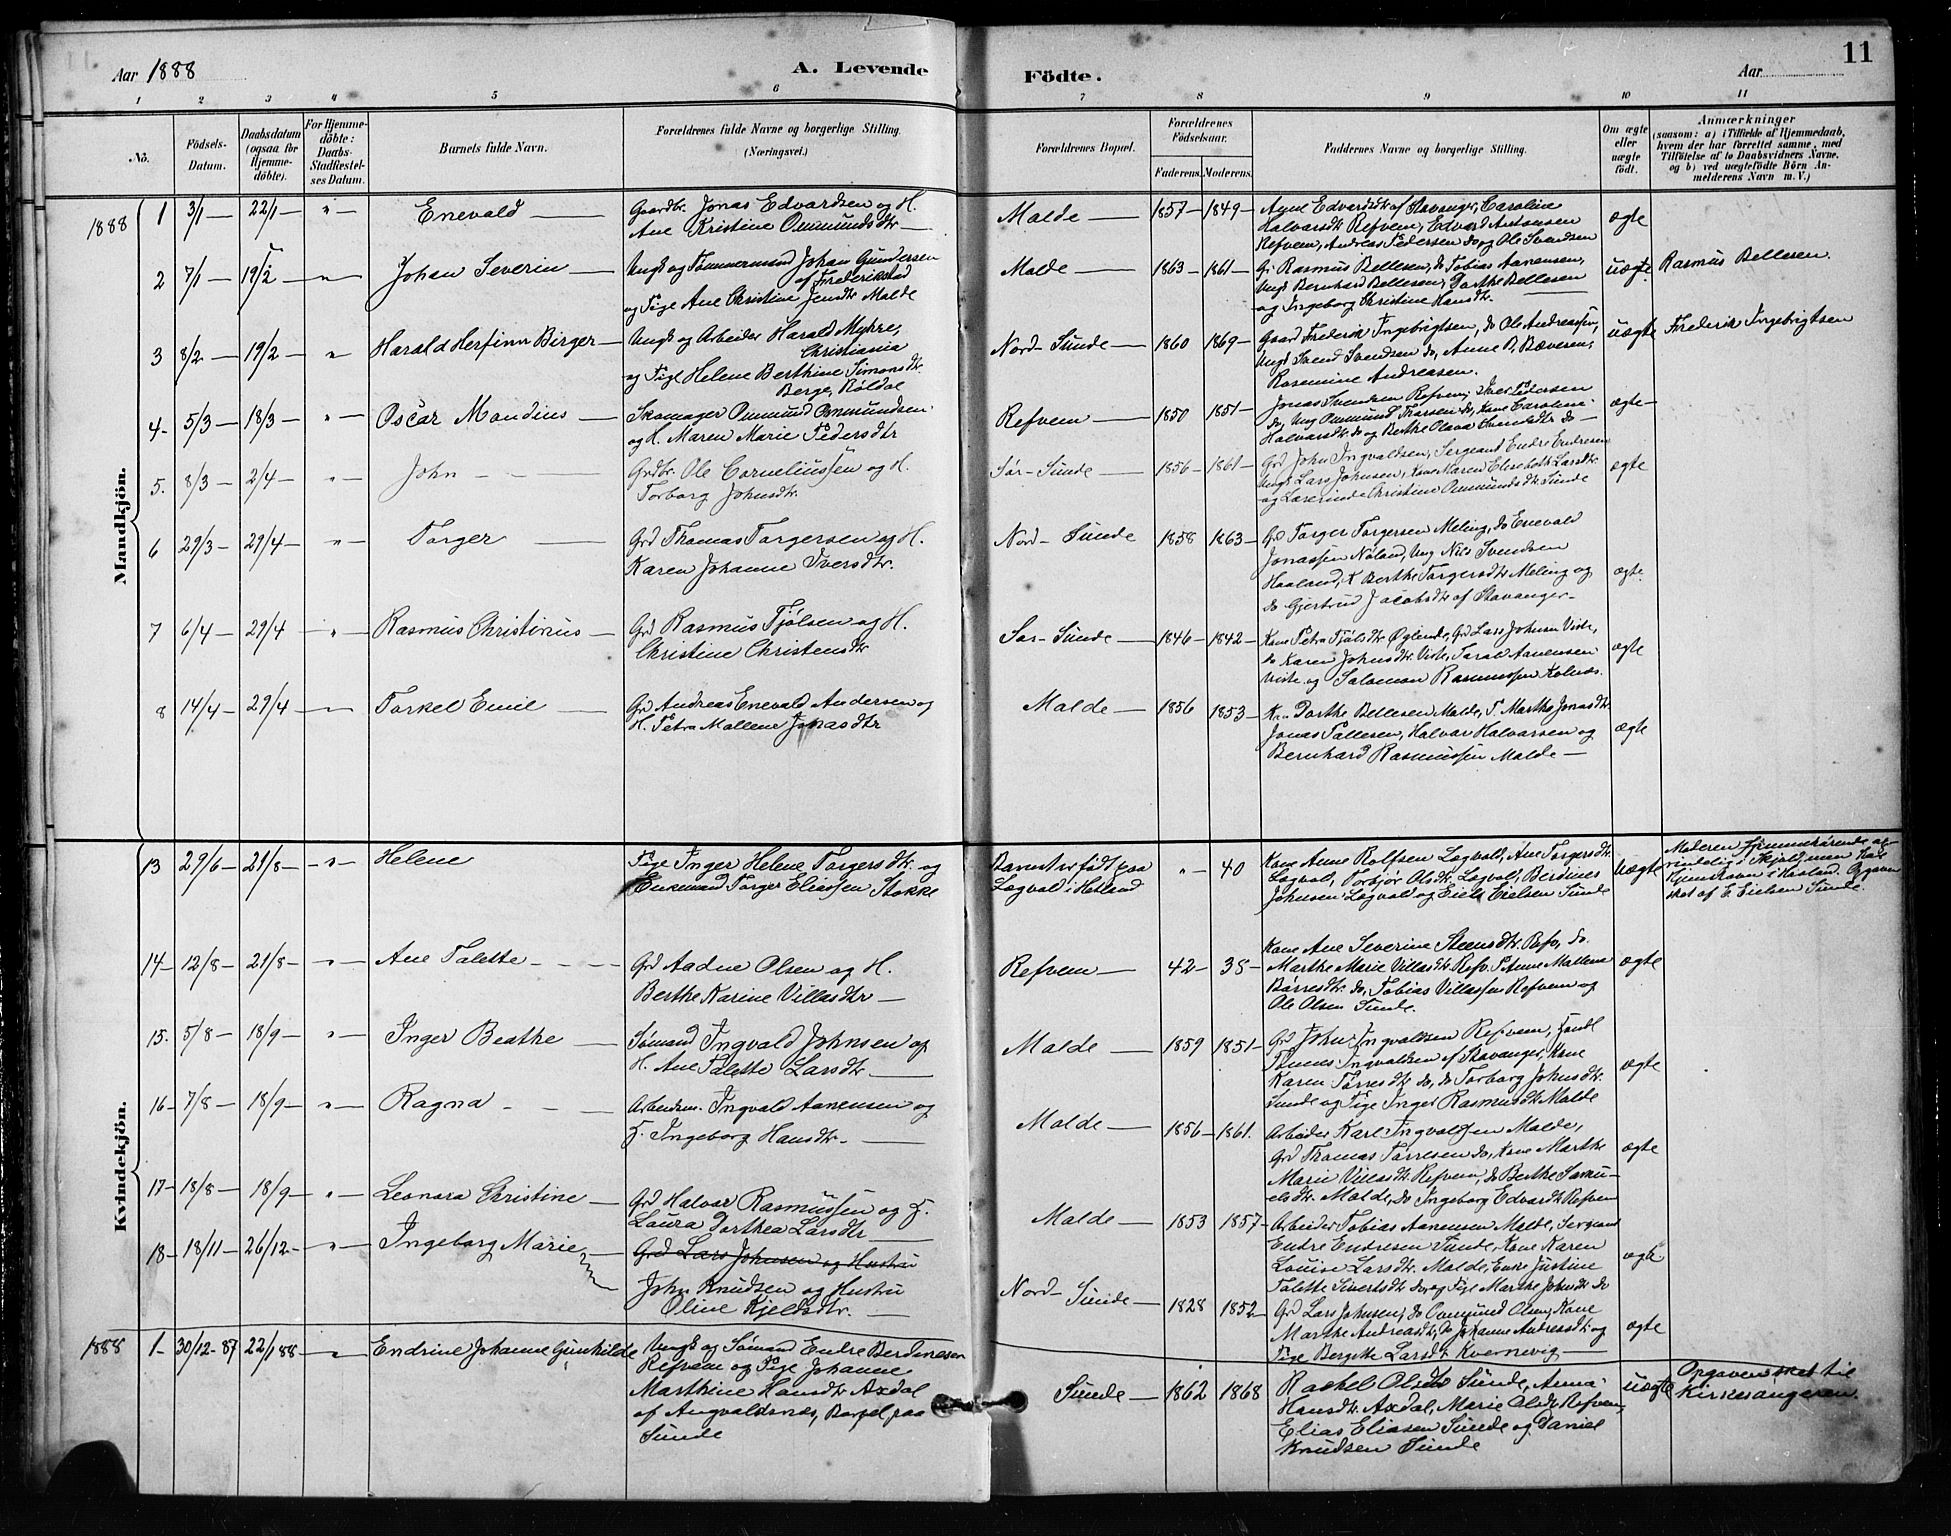 Aar 1888
A. Levende
Födte.
Aar
11
1 2 3 4 5 6 7 8 9 10 11
No.
Födsels-
Datum.
Daabsdatum
(ogsaa for
Hjemme-
döbte).
For Hjemme-
döbte:
Daabs-
Stadfæstel-
ses Datum.
Barnets fulde Navn.
Forældrenes fulde Navne og borgerlige Stilling.
(Næringsvei.)
Forældrenes Bopæl.
Forældrenes
Födselsaar.
Faderens. Moderens.
Faddernes Navne og borgerlige Stilling.
Om ægte
eller
uægte
födt.
Anmærkninger
(saasom: a) i Tilfælde af Hjemmedaab,
hvem der har forrettet samme, med
Tilföielse af to Daabsvidners Navne,
og b) ved uægtefödte Börn An-
melderens Navn m. V.)
Mandkjön.
1888 1 3/1 22/1 " Enevald
Gaardbr. Jonas Edvardsen og H.
Ane Kristine Ommundsdtr
Malde 1857 1849
Anne Edvardsdtr af Stavanger, Caroline
Halvarsdtr Refvem, Edvard Andersen
Refvem, Andreas Pedersen do, og Ole Svendsen
ægte
2 7/1 19/2 " Johan Severin
Ungk og Tømmermand Johan Gundersen
af Frederikstad
og Pige Ane Christine Jensdtr Malde
Malde 1863 1861
G. Rasmus Bellesen, do Tobias Aanensen,
Ungk Bernhard Bellesen, Dorthe Bellesen
og Ingeborg Christine Hansdtr.
uægte Rasmus Bellesen.
3 8/2 19/2 " Harald Herfinn Birger
Ungk og Arbeider Harald Myhre,
Christiania
og Pige Helene Berthine Simonsdtr.
Berge, Röldal
Nord-Sunde 1860 1869
Gaard Frederik Ingebrigtsen, do Ole Andreassen,
Ungk Svend Svendsen do, Anne B. Bæversen,
Rasmine Andreasen.
uægte Frederik Ingebrigtsen
4 5/3 18/3 " Oscar Mandius
Skomager Ommund Ommundsen
og H. Maren Marie Pedersdtr
Refvem 1850 1851
Jonas Svendsen Refvem, Iver Pedersen
do, Ung Ommund Thorsen do, Kone Caroline
Halvarsdtr do og Berthe Olava Svendsdtr do
ægte
5. 8/3 2/4 " John
Grdbr. Ole Corneliussen og H.
Torborg Johnsdtr.
Sør-Sunde 1856 1861
Grd John Ingvaldsen, Sergeant Endre Endresen
Ungk Lars Johnsen, Kone Karen Elisabeth Larsdtr
og Lærerinde Christine Ommundsdtr Sunde
ægte
6 29/3 29/4 " Torger
Grd Thomas Torgersen og H.
Karen Johanne Iversdtr.
Nord-Sunde 1858 1863
Gd Torger Torgersen Meling, do Enevald
Jonassen Nøland, Ung Nils Svendsen
Haaland, K Berthe Torgersdtr Meling og
do Gjertrud Jacobsdtr af Stavanger
ægte
7 6/4 29/4 " Rasmus Christinus
Grd Rasmus Tjølsen og H.
Christine Christensdtr
Sør-Sunde 1846 1842
Kone Petra Tjølsdtr Øglende, Grd Lars Johnsen Viste,
do Karen Johnsdtr. Viste, Tarald Aanensen
Viste og Salamon Rasmussen Kolnes.
ægte
8 14/4 29/4 Torkel Emil
Grd Andreas Enevald Andersen og
H. Petra Mallene Jonasdtr
Malde 1856 1853
Kone Dorthe Bellesen Malde, P. Marthe Jonasdtr
Jonas Pallesen, Halvar Halvarsen og
Bernhard Rasmussen Malde
ægte
Kvindekjön.
13 29/6 21/8 " Helene
Pige Inger Helene Torgersdtr. og
Enkemand Torger Eliassen Stokke
Barnet er født paa
Lagvald i Hetland " 40
Kone Anne Rolfsen Lagvold, Ane Torgersdtr.
Lagvold, Torbjør Olsdtr. Lagvold, Berdines
Johnsen Lagvold og Eiel Eielsen Sunde
Uægte
Moderen hjemmehørende
i Hetland. Opgaven
sket af E. Eielsen Sunde.
14 12/8 21/8 " Ane Talette
Grd Aadne Olsen og H.
Berthe Karine Villasdtr
Refvem 42 35
Kone Ane Severine Steensdtr. Refv, do.
Marthe Marie Villasdtr Refv. P. Anne Mallene
Børresdtr. do, Tobias Villassen Refvem og
Ole Olsen Sunde.
ægte
15. 5/8 18/9 " Inger Beathe
Sømand Ingvald Johnsen og
H. Ane Talette Larsdtr
Malde 1859 1851
Grd John Ingvaldsen Refvem, Handl
Thønes Ingvaldsen af Stavanger, Kone
Karen Torresdtr do, do Torborg Johnsdtr.
Sunde og Pige Inger Rasmusdtr. Malde
ægte
16 7/8 18/9 " Ragna
Arbeidsm. Ingvald Aanensen og
H. Ingeborg Hansdtr.
Malde 1856 1861.
Arbeider Karl Ingvaldsen Malde,
Grd Thomas Torresen do, Kone Marthe
Marie Villasdtr Refvem, do Berthe Samu-
elsdtr. Malde, do Ingeborg Edvardsdtr Refvem
ægte
17 18/8 18/9 " Leonora Christine
Grd Halvar Rasmussen og H.
Laura Dorthea Larsdtr
Malde 1853 1857
Arbeider Tobias Aanensen Malde, Sergeant
Endre Endresen Sunde, Kone Karen
Louise Larsdtr. Malde, Enke Justine
Talette Sivertsdtr do, og Pige Marthe Johnsdtr do
ægte
18 18/11 26/12 " Ingeborg Marie
Grd Lars Johnsen og Hustru
John Knudsen og Hustru
Oline Kjeldsdtr.
Nord-Sunde 1828 1852
Grd Lars Johnsen, do Ommund Olsen, Kone
Marthe Andreasdtr, do Johanne Andreasdtr og
Pige Bergitte Larsdtr Kvernevig
ægte
1888 1 30/12-87 22/1 88 " Endrine Johanne Gunhilde
Ungk og Sømand Endre Berdinesen
Refvem og Pige Johanne
Marthine Hansdtr. Axdal
af Augvaldsnes, Bopæl paa
Sunde
Sunde 1862 1868
Rachel Olsdtr Sunde, Anna
Hansdtr. Axdal, Marie Olsdtr Refvem,
Elias Eliasen Sunde og Daniel
Knudsen Sunde
uægte
Opgaven sket til
Kirkesangeren.